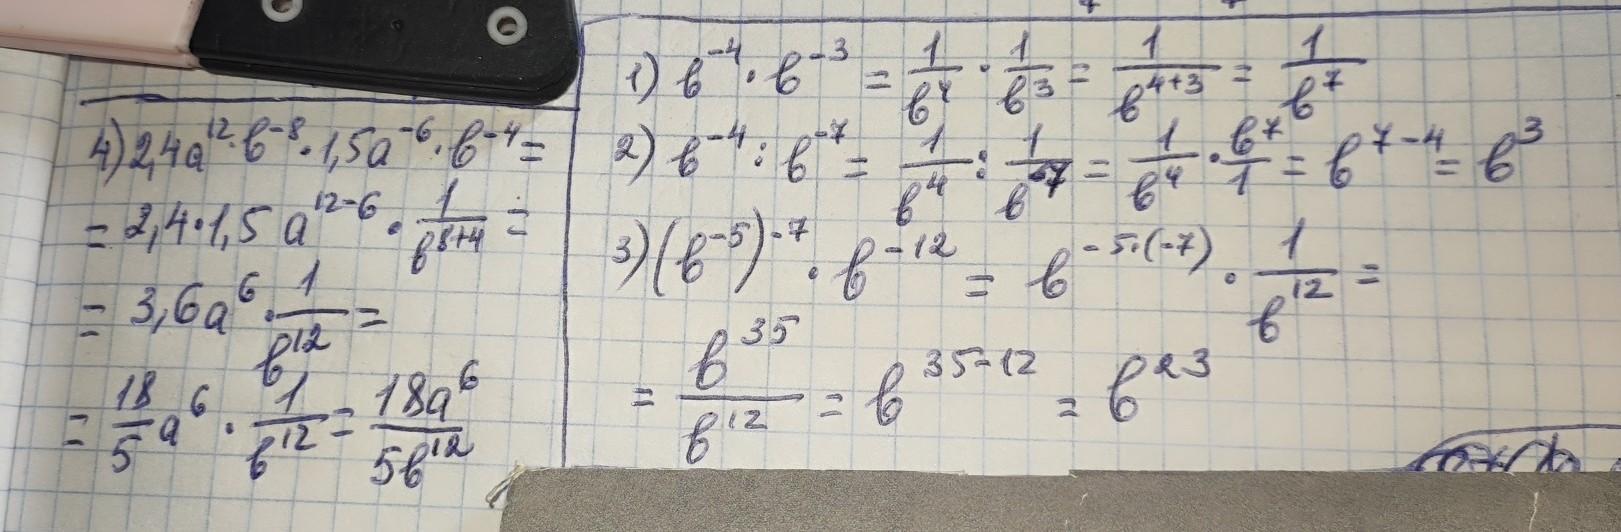 4) 2,4a^12 · b^-8 · 1,5a^-6 · b^-4 =
= 2,4 · 1,5 a^12-6 · 1/b^8+4 =
= 3,6a^6 · 1/b^12 =
= 18/5 a^6 · 1/b^12 = 18a^6/5b^12
1) b^-4 · b^-3 = 1/b^4 · 1/b^3 = 1/b^4+3 = 1/b^7
2) b^-4 : b^-7 = 1/b^4 : 1/b^7 = 1/b^4 · b^7/1 = b^7-4 = b^3
3) (b^-5)^-7 · b^-12 = b^-5·(-7) · 1/b^12 =
= b^35/b^12 = b^35-12 = b^23